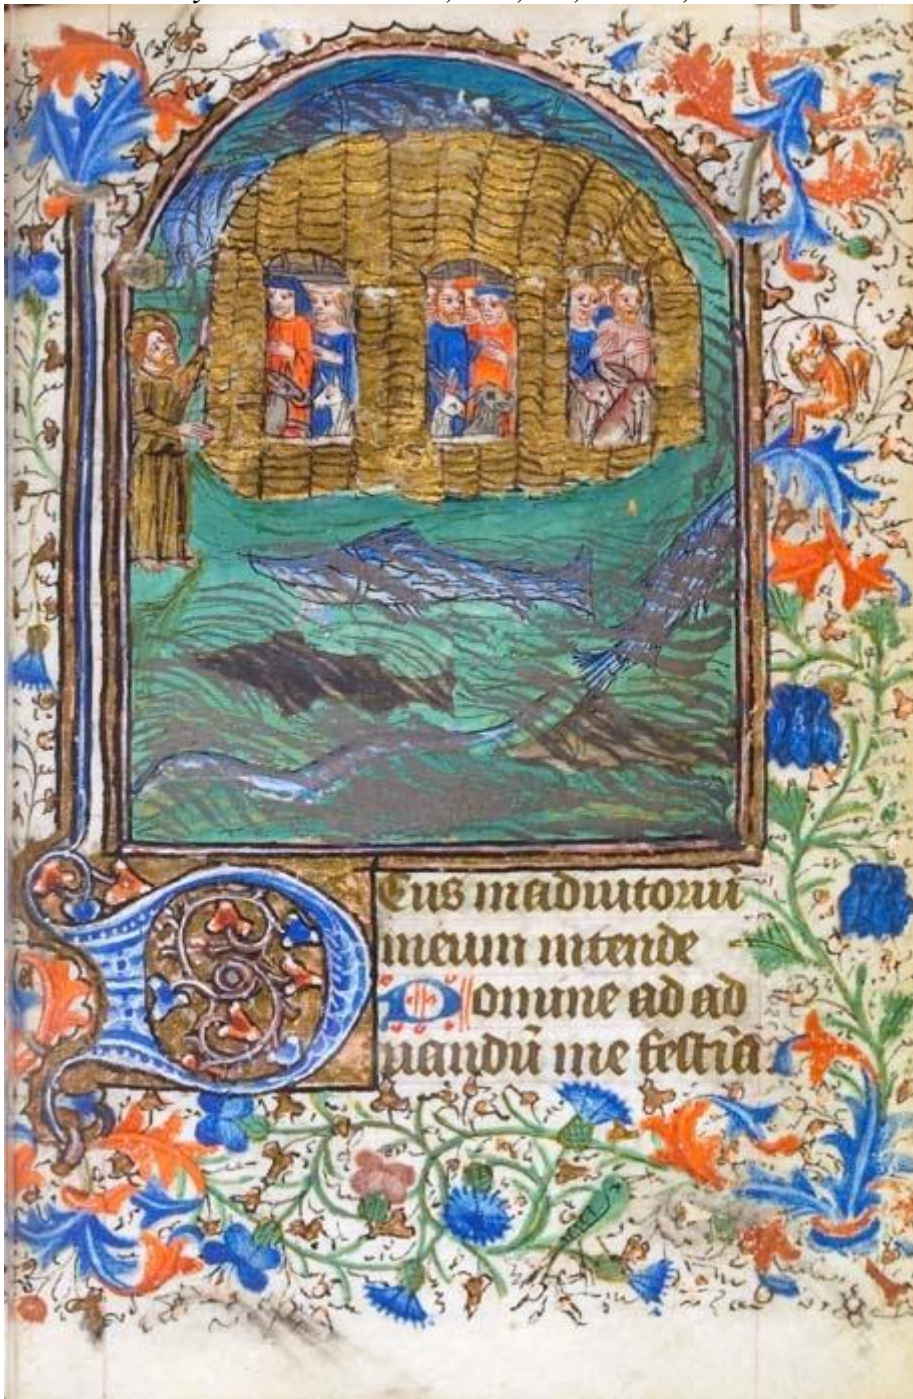 Deus in adiutoriũ
meum intende
Domine ad ad
iuuandũ me festiã